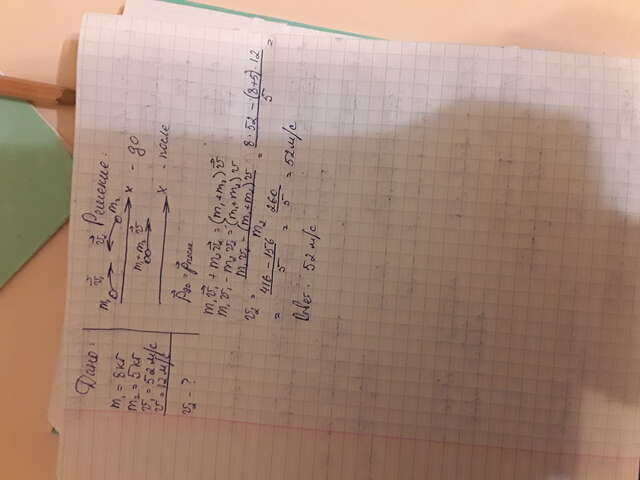 Дано:
m₁ = 8 кг
m₂ = 5 кг
v₁ = 52 м/с
v = 12 м/с
v₂ - ?
Решение:
m₁ v⃗₁ v⃗₂ m₂
x - до
m₁+m₂ v⃗
x - после
p⃗до = p⃗посл
m₁v⃗₁ + m₂v⃗₂ = (m₁+m₂)v⃗
m₁v₁ - m₂v₂ = (m₁+m₂)v
v₂ = (m₁v₁ - (m₁+m₂)v) / m₂ = (8·52 - (8+5)·12) / 5 =
= (416 - 156) / 5 = 260 / 5 = 52 м/с
Ответ: 52 м/с